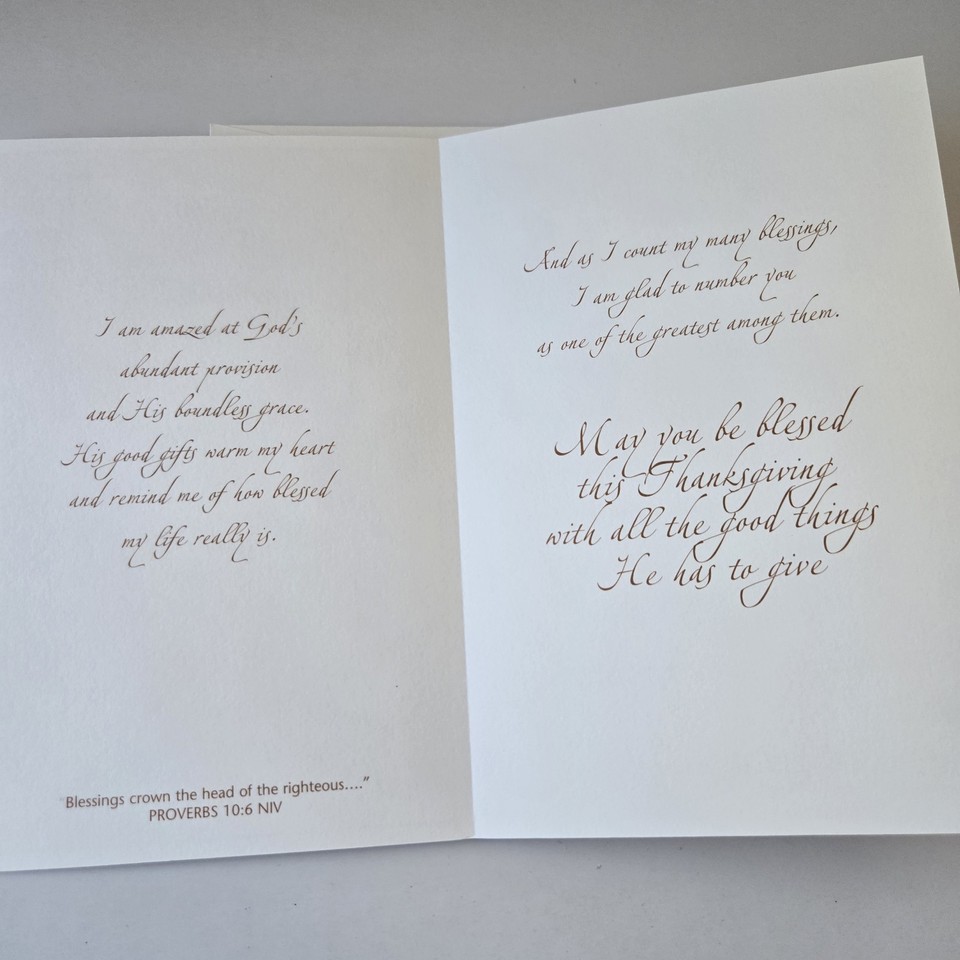 I am amazed at God's
abundant provision
and His boundless grace.
His good gifts warm my heart
and remind me of how blessed
my life really is.
"Blessings crown the head of the righteous...."
PROVERBS 10:6 NIV
And as I count my many blessings,
I am glad to number you
as one of the greatest among them.
May you be blessed
this Thanksgiving
with all the good things
He has to give